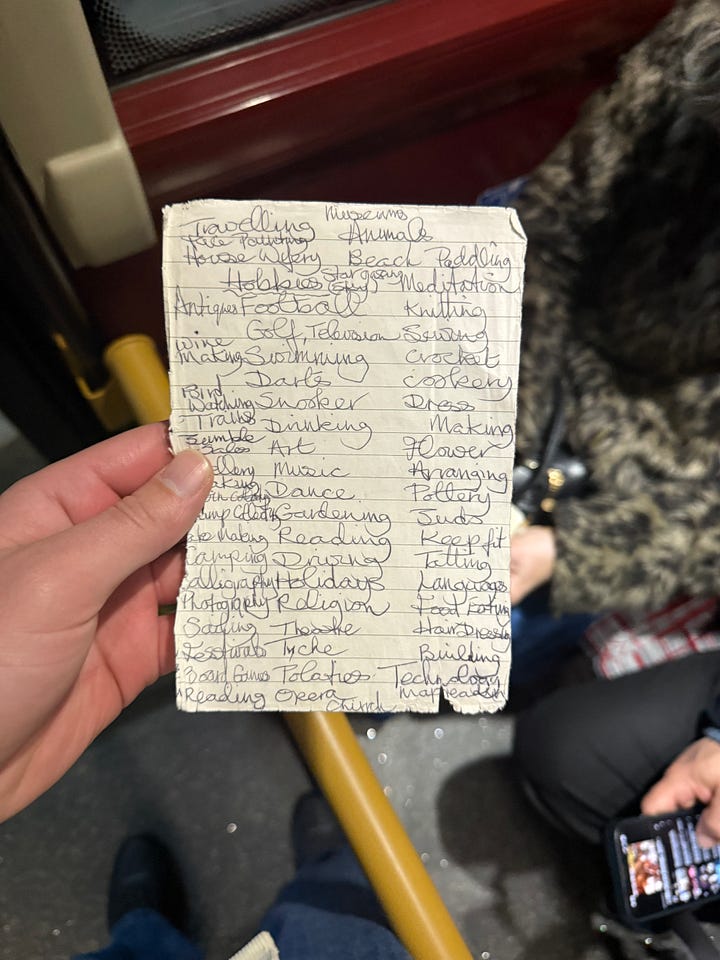 Museums
Travelling Animals
Face Painting
House Wifery Beach Paddling
Hobbies Star gazing Meditation
Antiques Football Knitting
Golf, Television Sewing
Wine
Making Swimming Crocket
Darts Cookery
Bird
Watching Snooker Dress
Trains Drinking Making
Art Flower
Music Arranging
Dance Pottery
Gardening Judo
Making Reading Keep fit
Camping Driving Tatting
Calligraphy Holidays Language
Photography Religion Food Eating
Theatre Hair Dressing
Festivals Building
Board Games Technology
Reading Opera Map reading
Church